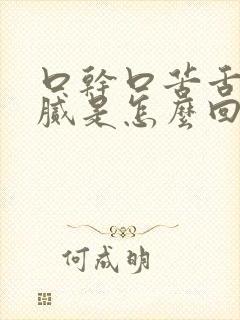 口幹口苦舌
膩是怎麼回
何成明